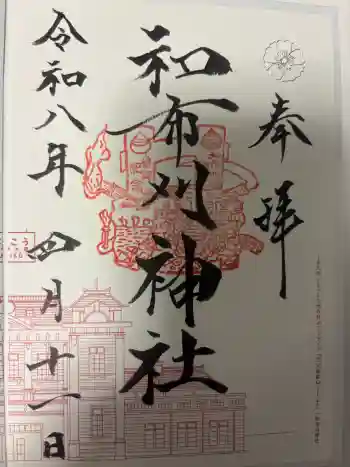 奉拝
和布刈神社
令和八年四月十一日